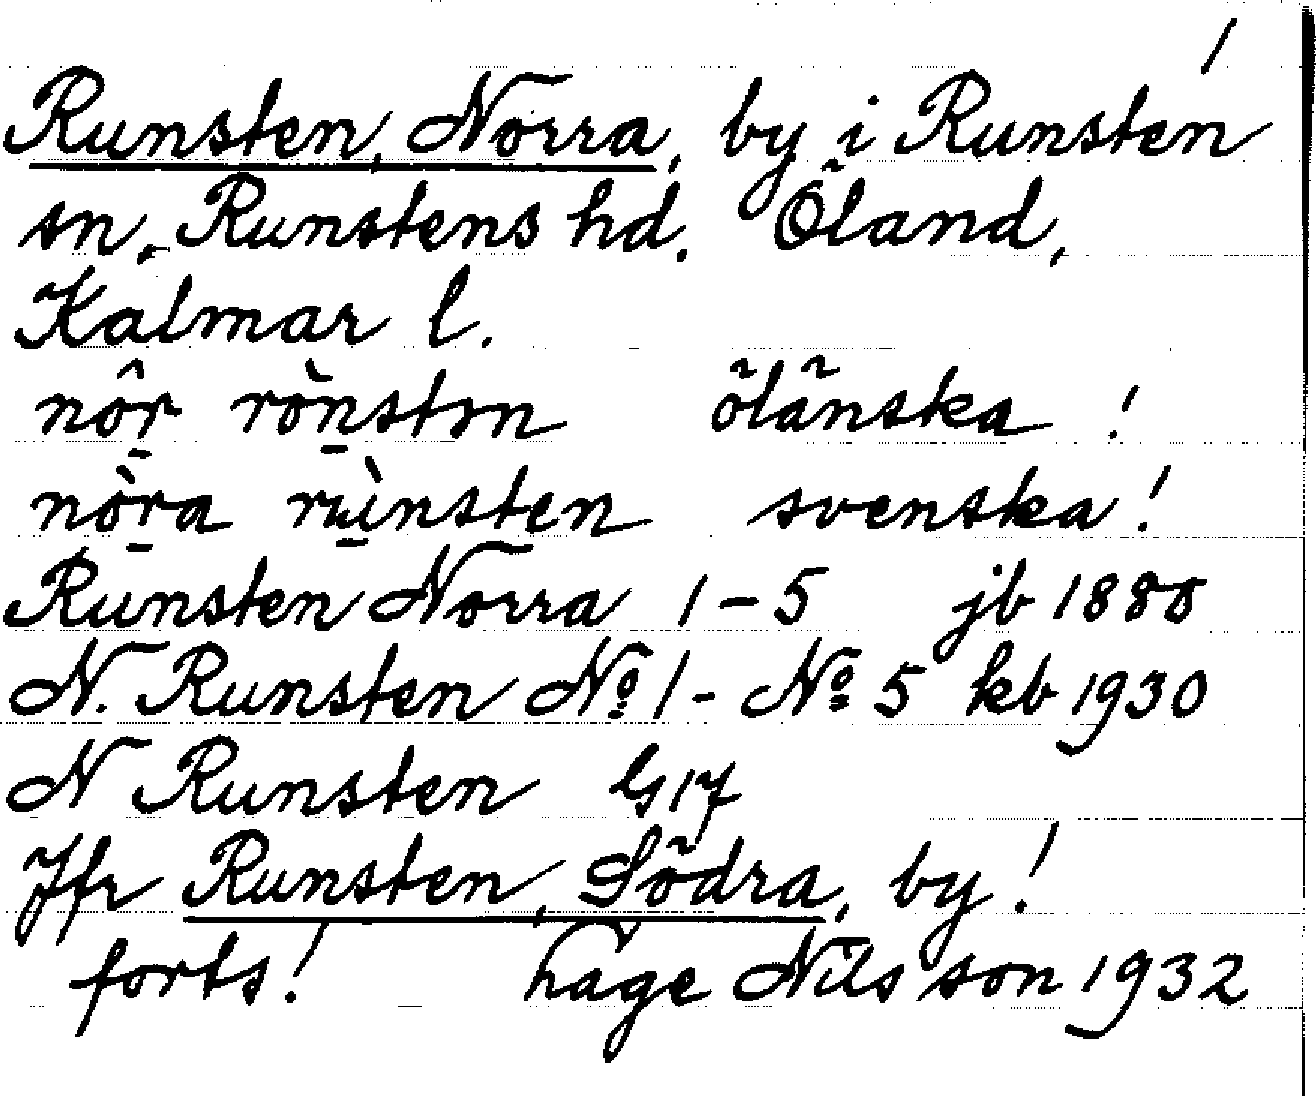 1
Runsten, Norra, by i Runsten
sn, Runstens hd. Öland,
Kalmar l.
nôr rònstn öländska !
nòra rùnsten svenska !
Runsten Norra 1 – 5 jb 1880
N. Runsten Nº 1 - Nº 5 kb 1930
N Runsten G 17
Jfr Runsten, Södra, by !
forts ! Hage Nilsson 1932